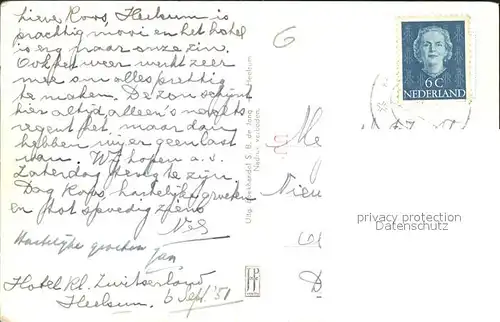 Lieve Koos, Heelsum is
prachtig mooi en het hotel
is erg naar onze zin.
Ook het weer werkt zeer
mee om alles prettig
te maken. De zon schijnt
hier altijd, alleen 's nachts
regent het, maar dan
hebben wij er geen last
van. Wij hopen a.s.
Zaterdag terug te zijn.
Dag Koos, hartelijk groeten
en tot spoedig ziens
Nel
Hartelijke groeten
Jan
Hotel Kl. Zwitserland
Heelsum. 6 Sept. '51
6
Uitg. Boekhandel S. B. de Jong Heelsum
Nadruk verboden.
6C
NEDERLAND
Me
Nieu
D
privacy protection
Datenschutz